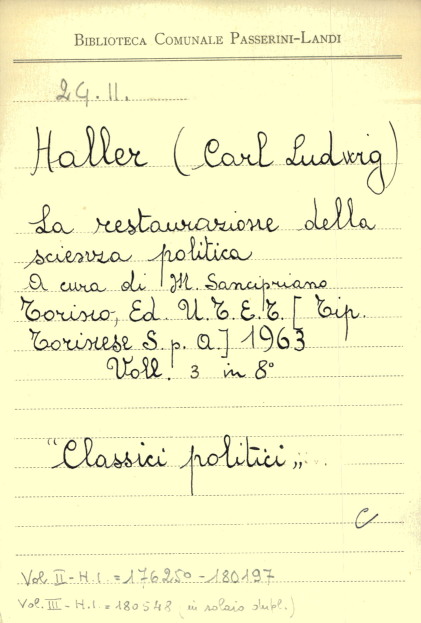 BIBLIOTECA COMUNALE PASSERINI-LANDI
2G.II.
Haller (Carl Ludwig)
La restaurazione della
scienza politica
A cura di M. Sancipriano
Torino, Ed. U.T.E.T. [Tip.
Torinese S.p.A.] 1963
Voll. 3 in 8°
"Classici politici„
C
Vol. II - H.I. = 176250 - 180197
Vol. III - H.I. = 180548 (in solaio dupl.)